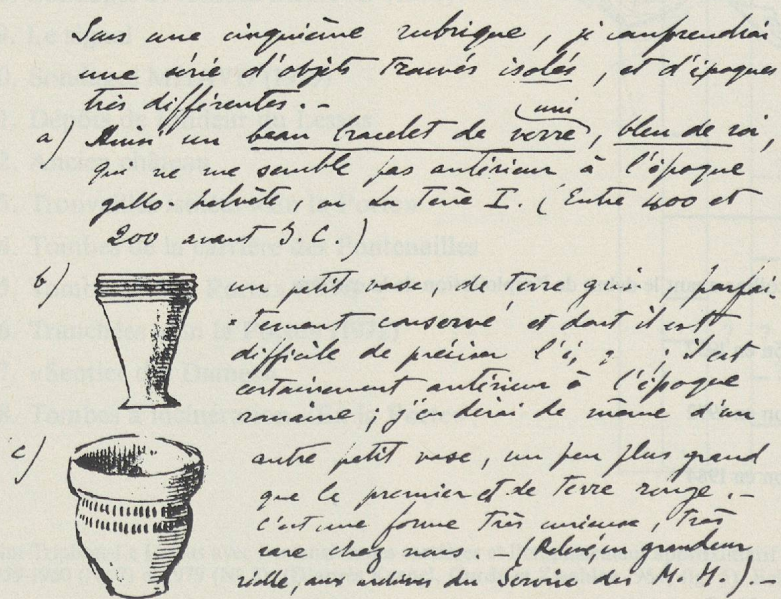 Sous une cinquième rubrique, je comprendrai
une série d'objets trouvés isolés, et d'époques
très différentes. -
uni
a) Ainsi un beau bracelet de verre, bleu de roi,
qui ne me semble pas antérieur à l'époque
gallo-helvète, ou La Tène I. (Entre 400 et
200 avant J.C.)
b) un petit vase, de terre grise, parfai-
tement conservé et dont il est
difficile de préciser l'é, ? ; Il est
certainement antérieur à l'époque
romaine; j'en dirai de même d'un
c) autre petit vase, un peu plus grand
que le premier et de terre rouge. -
c'est une forme très curieuse, très
rare chez nous. - (Relevé en grandeur
réelle, aux archives du Service des M.H.). -